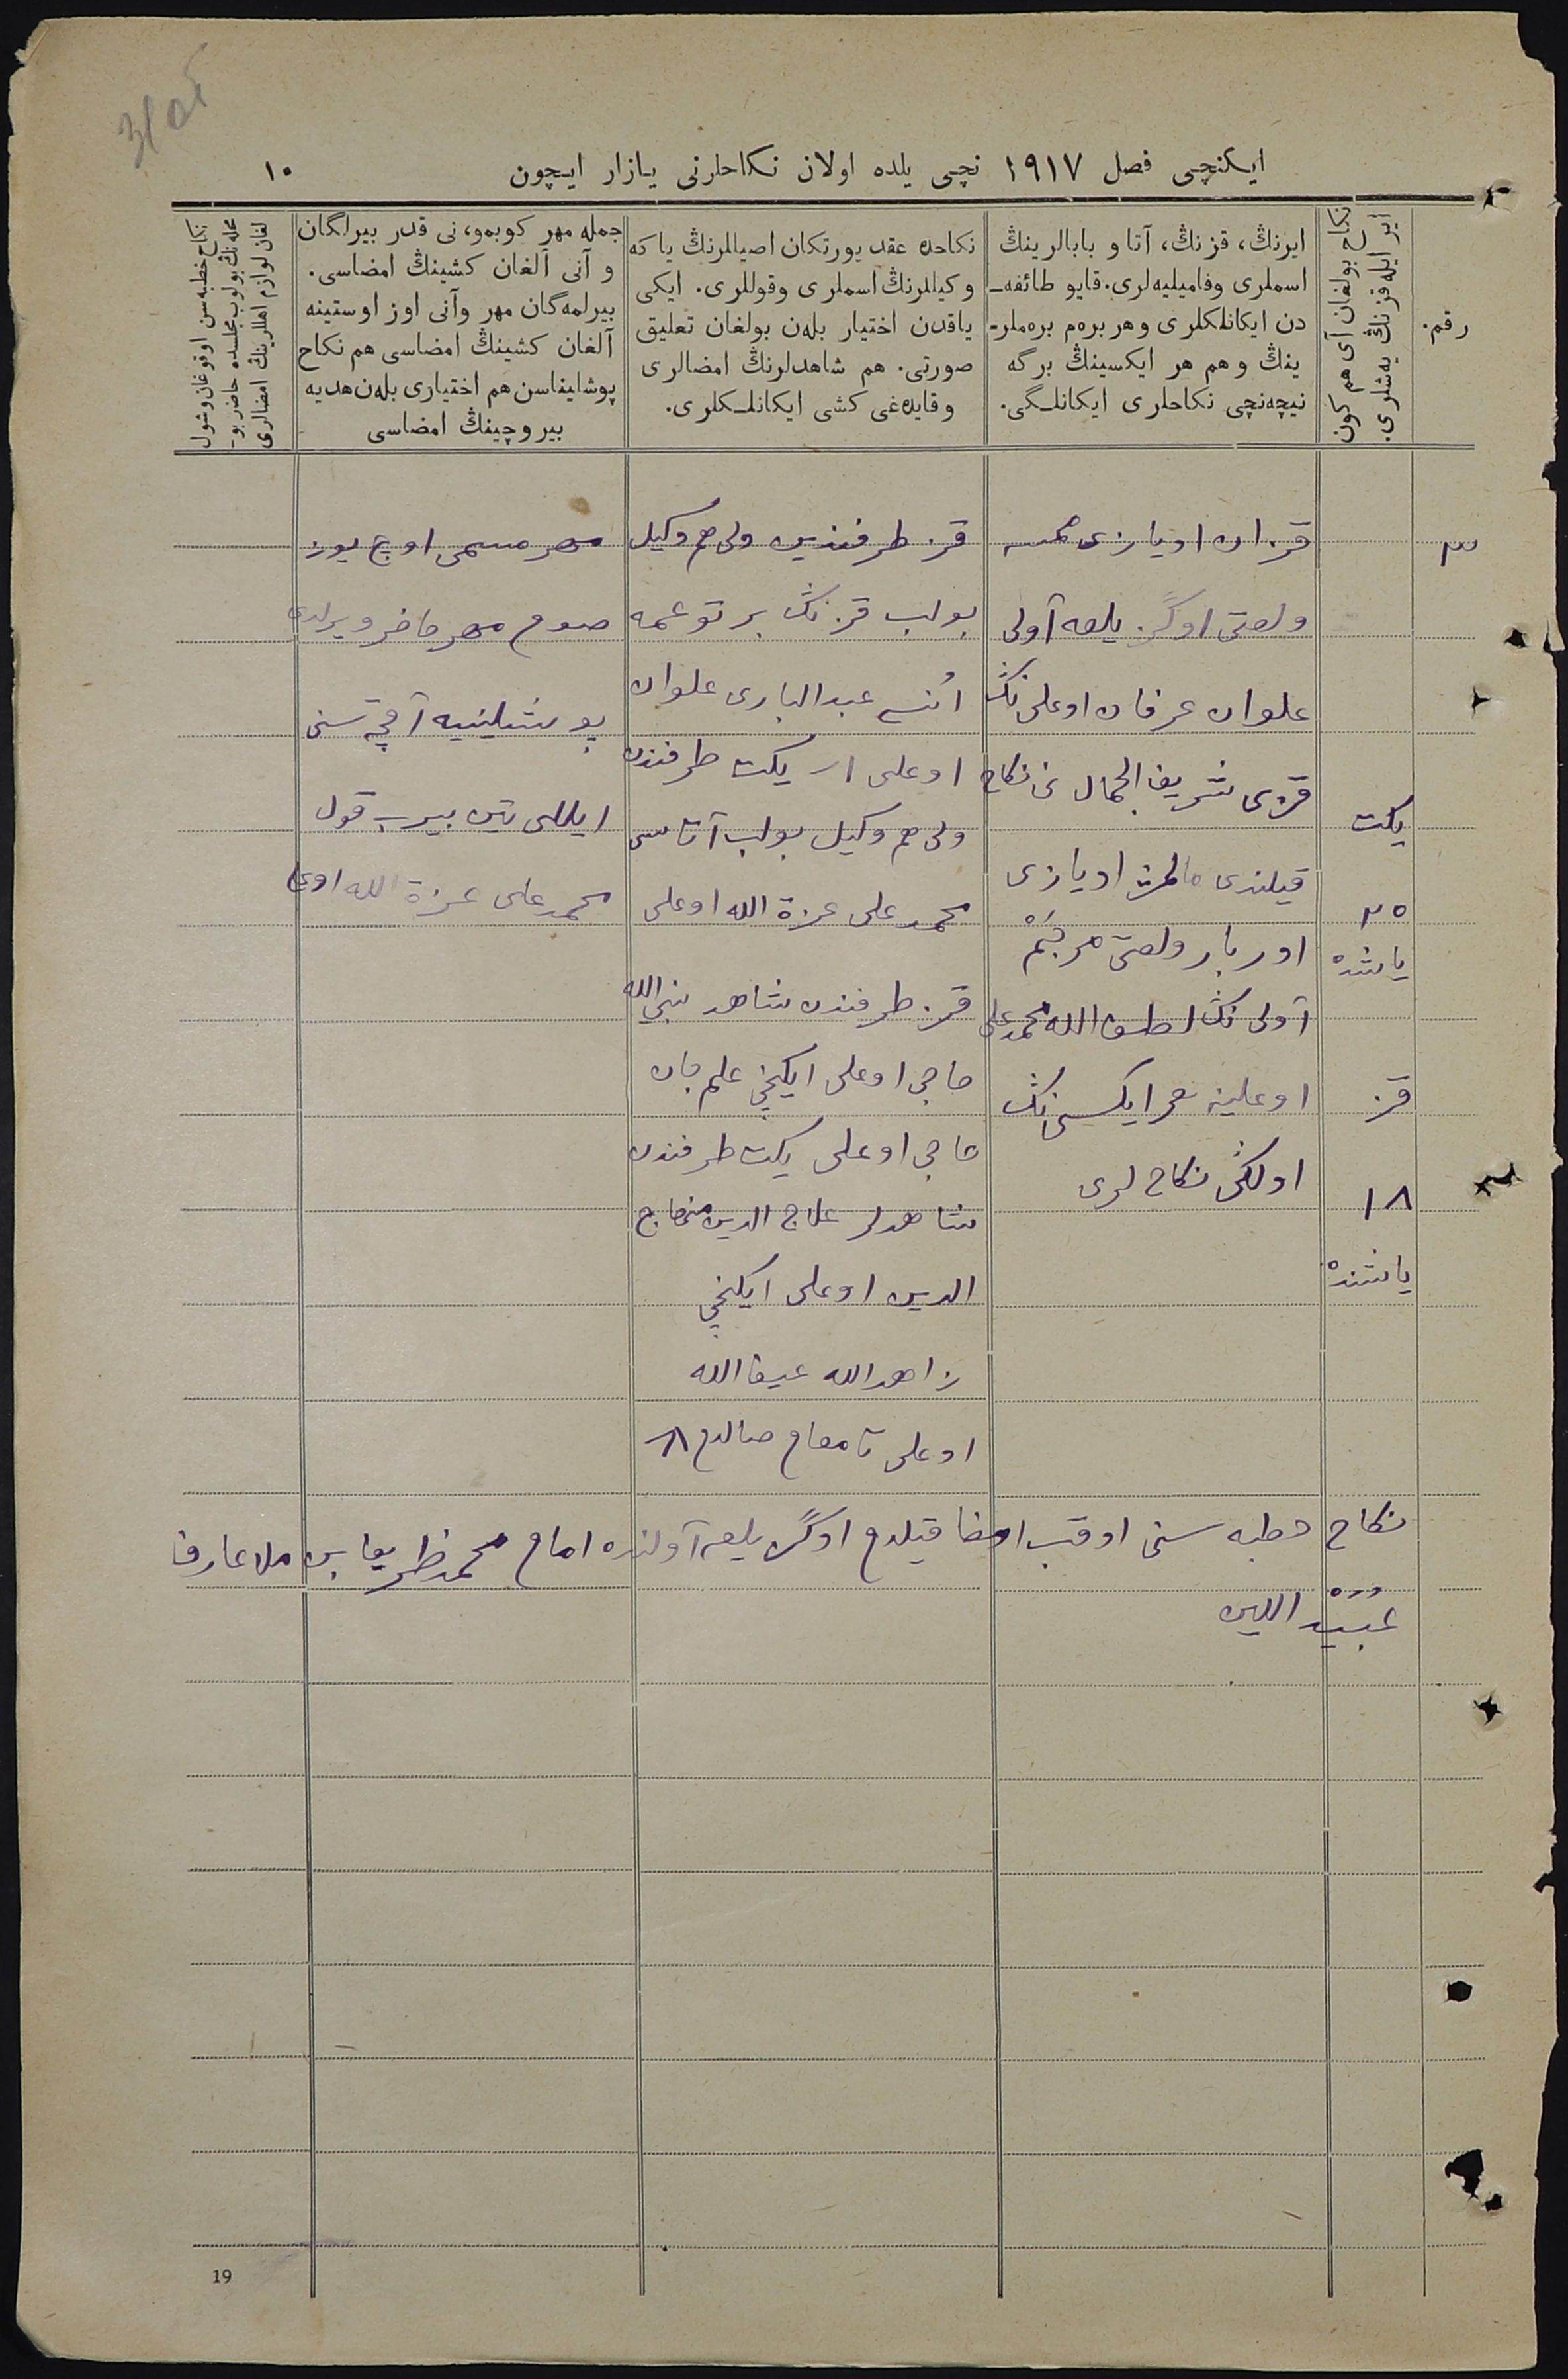 ایکنچی فصل ۱۹۱۷ نچی یلده اولان نکاحلرنی یازار ایچون
۱۰
رقم.
نکاح بولغان آی هم کون
ایر ایله قزنڭ یه‌شلری.
ایرنڭ، قزنڭ، آتا و بابالرینڭ
اسملری وفامیلیه‌لری. قایو طائفه‌ـ
دن ایکانلکلری وهر بره‌م بره‌ملرـ
ینڭ وهم هر ایکسینڭ برگه
نیچه‌نچی نکاحلری ایکانلـگی.
نکاحده عقد یورتکان اصیاللرنڭ یاکه
وکیللرنڭ اسملری وقوللری. ایکی
یاقدن اختیار بله‌ن بولغان تعلیق
صورتی. هم شاهدلرنڭ امضالری
وقایده‌غی کشی ایکانلـکلری.
جمله مهر کوبمو، نی قدر بیرلگان
و آنی آلغان کشینڭ امضاسی.
بیرلمه‌گان مهر وآنی اوز اوستینه
آلغان کشینڭ امضاسی هم نکاح
پوشلیناسن هم اختیاری بله‌ن هدیه
بیروچینڭ امضاسی
نکاح خطبه سن اوقوغان وشول
محله‌نڭ بولوب مجلسده حاضر بوـ
لغان لوازم اهللرینڭ امضالری
۳
یکت
۲۵
یاشده
قز
۱۸
یاشنده
قزان اویازی
ولصتی اوگز یلغه آولی
علوان عرفان اوغلی نڭ
قزی شریف الجمال نی نکاح
قیلندی مالمژ اویازی
اوربار ولصتی مرجَم
آولی نڭ لطف الله محمدعلی
اوغلینه هر ایکسی نڭ
اولگی نکاح لری
قز طرفندین ولی هم وکیل
بولب قز نڭ بر توغمه
انُسی عبدالباری علوان
اوغلی ار یکت طرفندن
ولی هم وکیل بولب آتاسی
محمد علی عزة الله اوغلی
قز طرفندن شاهد نبی الله
حاجی اوغلی ایکنچی علم جان
حاجی اوغلی یکت طرفندن
شاهدلر علاج الدین منهاج
الدین اوغلی ایکنچی
زاهدالله
اوغلی تامغام صالدم
مهر مسمی اوچ یوز
صوم مهر حاضر ویرلدی
پوشلینیه آقچه سنی
ایللی تین بیرب قول
محمد علی عزة الله اوغلی
نکاح خطبه سنی اوقب امضا قیلدم اوگز یلغه آولنده امام محمدظریف بن ملا عارف
19